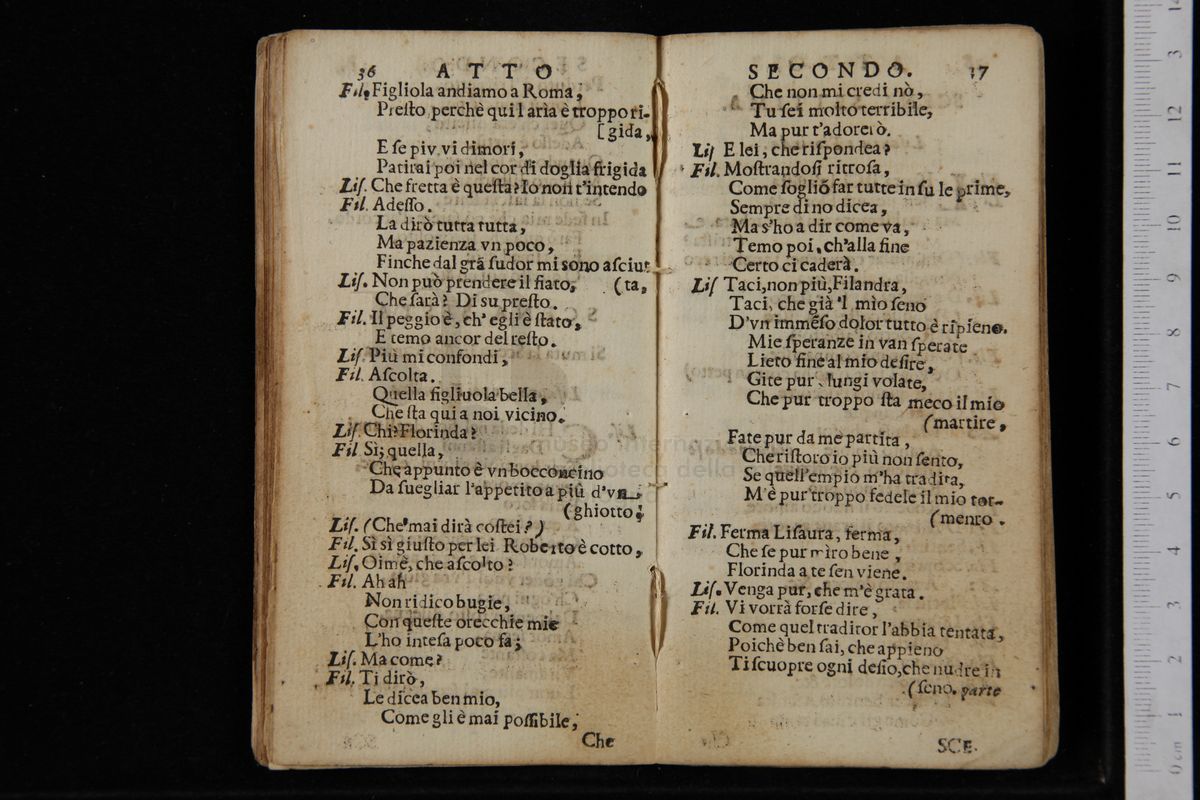 36 ATTO
Fil. Figliola andiamo a Roma,
Presto perchè qui l aria è troppo ri-
[gida,
E se piv vi dimori,
Patirai poi nel cor di doglia frigida
Lis. Che fretta è questa? Io non t'intendo
Fil. Adesso.
La dirò tutta tutta,
Ma pazienza vn poco,
Finche dal grã sudor mi sono asciut
Lis. Non può prendere il fiato, (ta,
Che sarà? Di su presto.
Fil. Il peggio è, ch' egli è stato,
E temo ancor del resto.
Lis. Più mi confondi,
Fil. Ascolta.
Quella figliuola bella,
Che sta qui a noi vicino.
Lis. Chi? Florinda?
Fil Si; quella,
Che appunto è vn bocconcino
Da suegliar l'appetito a più d'vn
(ghiotto;
Lis. (Che mai dirà costei?)
Fil. Sì sì giusto per lei Roberto è cotto,
Lis. Oimè, che ascolto?
Fil. Ah ah
Non ridico bugie,
Con queste orecchie mie
L'ho intesa poco fa;
Lis. Ma come?
Fil. Ti dirò,
Le dicea ben mio,
Come gli è mai possibile,
Che
SECONDO. 37
Che non mi credi nò,
Tu sei molto terribile,
Ma pur t'adorerò.
Lis E lei, che rispondea?
Fil. Mostrandosi ritrosa,
Come sogliõ far tutte in su le prime,
Sempre di no dicea,
Ma s'ho a dir come va,
Temo poi, ch'alla fine
Certo ci caderà.
Lis Taci, non più, Filandra,
Taci, che già 'l mio seno
D'vn immẽso dolor tutto è ripieno.
Mie speranze in van sperate
Lieto fine al mio desire,
Gite pur lungi volate,
Che pur troppo sta meco il mio
(martire,
Fate pur da me partita,
Che ristoro io più non sento,
Se quell'empio m'ha tradita,
M'è pur troppo fedele il mio tor-
(mento.
Fil. Ferma Lisaura, ferma,
Che se pur miro bene,
Florinda a te sen viene.
Lis. Venga pur, che m'è grata.
Fil. Vi vorrà forse dire,
Come quel traditor l'abbia tentata,
Poichè ben sai, che appieno
Ti scuopre ogni desio, che nudre in
(seno. parte
SCE.